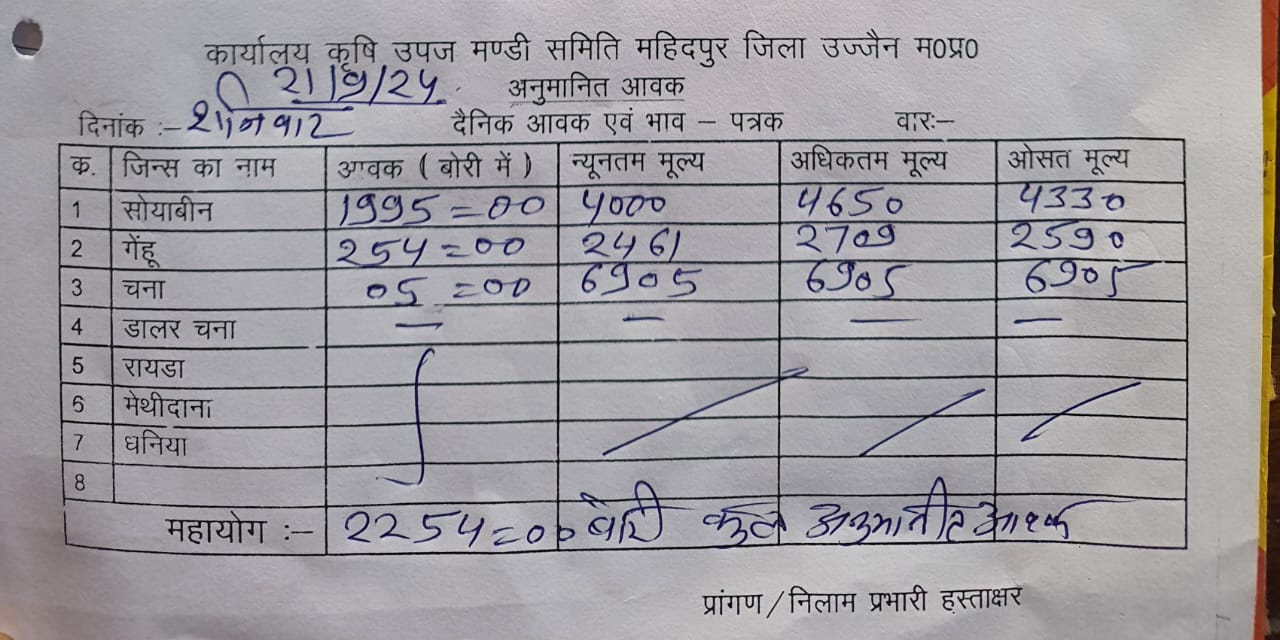 कार्यालय कृषि उपज मण्डी समिति महिदपुर जिला उज्जैन म0प्र0
21/9/24 अनुमानित आवक
दिनांक :- शनिवार दैनिक आवक एवं भाव – पत्रक वारः–
क. जिन्स का नाम आवक ( बोरी में ) न्यूनतम मूल्य अधिकतम मूल्य ओसत मूल्य
1 सोयाबीन 1995=00 4000 4650 4330
2 गेंहू 254=00 2461 2709 2590
3 चना 05=00 6905 6905 6905
4 डालर चना — — — —
5 रायडा
6 मेथीदाना
7 धनिया
8
महायोग :– 2254=00 बोरी कुल अनुमानीत आवक
प्रांगण/निलाम प्रभारी हस्ताक्षर